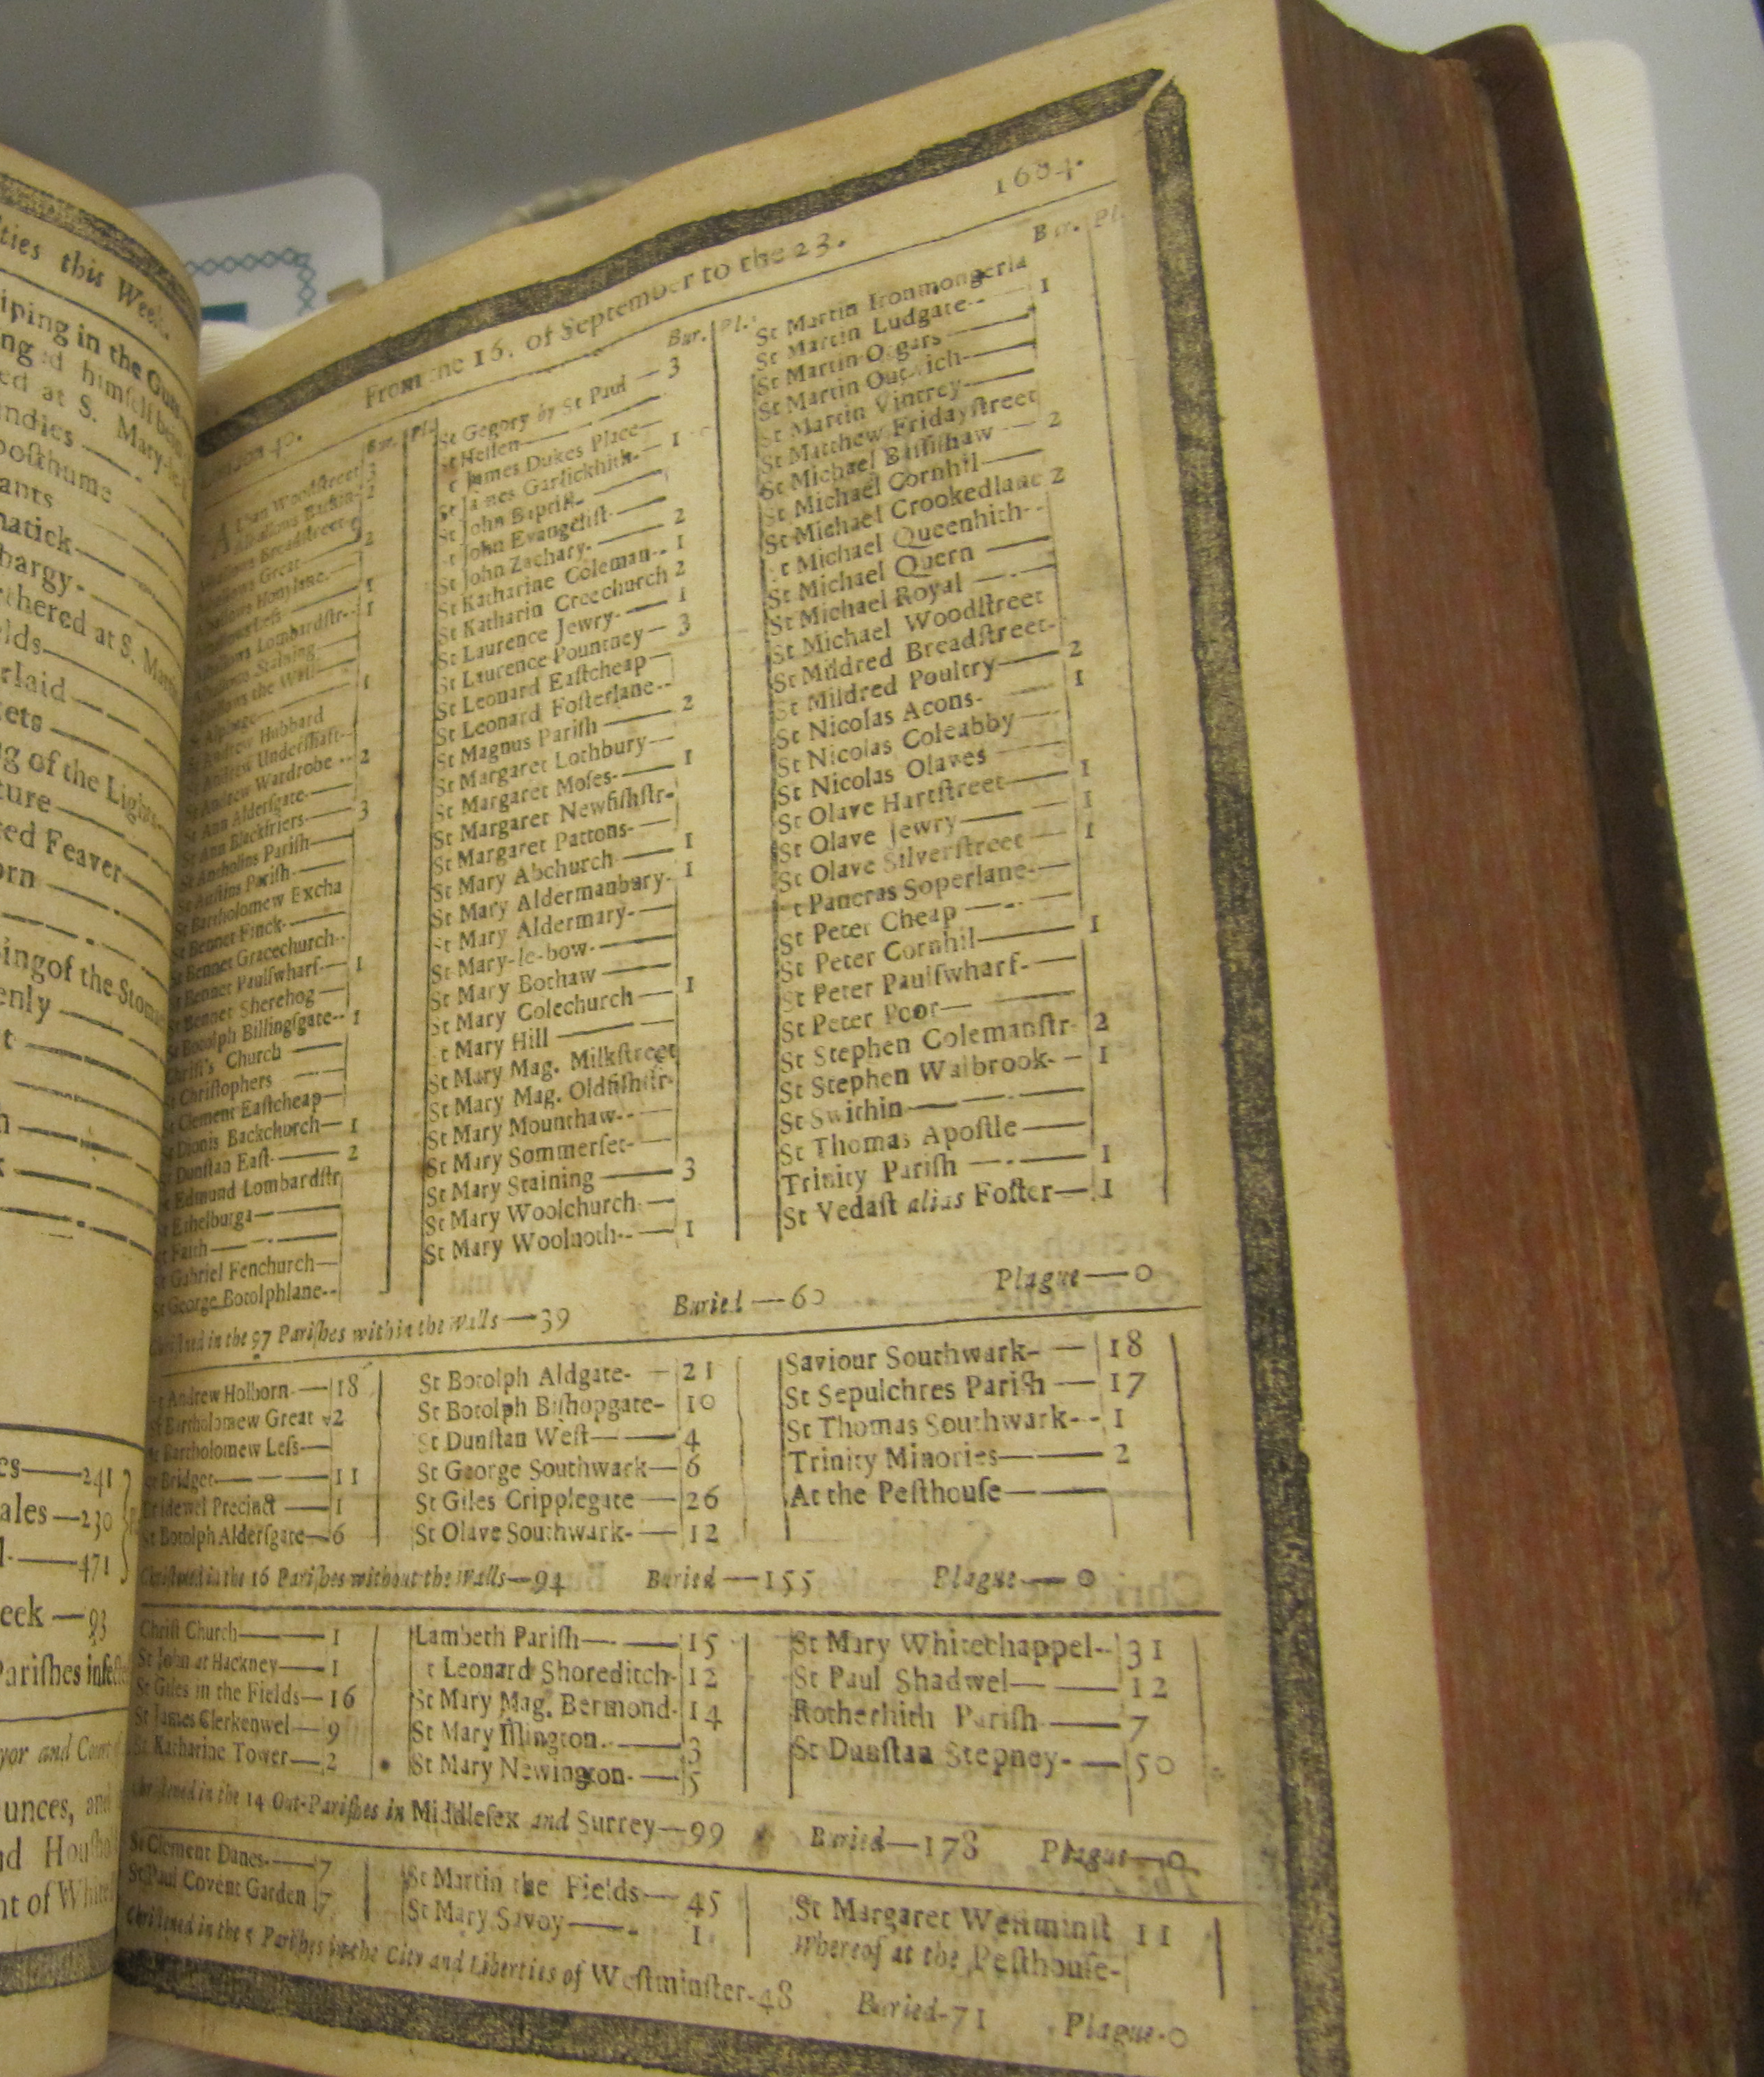 ties this Week.
iping in the Guts
ng'd himself
ed at S. Mary-le-
ndles
posthume
ants
natick
hargy-
thered at S. Martin
lds
rlaid
ets
g of the Lights
ture
ted Feaver
orn
ing of the Stom
enly
t
h
es—241
ales—230
l-—471
eek—93
Parishes infe
yor and Court
unces, and
nd Housho
nt of White
From the 16. of September to the 23. 1664.
London 40. Bur. Pl.
Alban Woodstreet 3
Alhallows Barkin- 2
Alhallows Breadstreet
Alhallows Great 2
Alhallows Honylane.
Alhallows Less 1
Alhallows Lombardstr- 1
Alhallows Staining
Alhallows the Wall
St Alphage 1
St Andrew Hubbard
St Andrew Undershaft--
St Andrew Wardrobe -- 2
St Ann Aldersgate-
St Ann Blackfriers 3
St Antholins Parish
St Austins Parish-
St Bartholomew Excha
St Bennet Finck-
St Bennet Gracechurch--
St Bennet Paulswharf- 1
St Bennet Sherehog
St Botolph Billingsgate-- 1
Christ's Church
St Christophers
St Clement Eastcheap
St Dionis Backchurch 1
St Dunstan East- 2
St Edmund Lombardstr
St Ethelburga
St Faith
St Gabriel Fenchurch
St George Botolphlane--
Bur. Pl.
St Gegory by St Paul — 3
St Hellen
t James Dukes Place
St James Garlickhith- 1
St John Baptist-
t John Evangelist-
St John Zachary- 2
St Katharine Coleman-- 1
St Katharin Creechurch 2
St Laurence Jewry- 1
St Laurence Pountney 3
St Leonard Eastcheap
St Leonard Fosterlane--
St Magnus Parish 2
St Margaret Lothbury
St Margaret Moses- 1
St Margaret Newfishstr-
St Margaret Pattons-
St Mary Abchurch 1
St Mary Aldermanbury- 1
St Mary Aldermary-
St Mary-le-bow-
St Mary Bothaw
St Mary Colechurch 1
t Mary Hill
St Mary Mag. Milkstreet
St Mary Mag. Oldfishstr-
St Mary Mounthaw--
St Mary Sommerset-
St Mary Staining 3
St Mary Woolchurch
St Mary Woolnoth-- 1
Bur. Pl.
St Martin Ironmongerla
St Martin Ludgate-- 1
St Martin Orgars
St Martin Outwich
St Martin Vintrey
St Matthew Fridaystreet
St Michael Bassishaw 2
St Michael Cornhil
St Michael Crookedlane 2
t Michael Queenhith--
St Michael Quern
St Michael Royal
St Michael Woodstreet
St Mildred Breadstreet-
St Mildred Poultry 2
St Nicolas Acons- 1
St Nicolas Coleabby
St Nicolas Olaves
St Olave Hartstreet 1
St Olave Jewry 1
St Olave Silverstreet 1
t Pancras Soperlane-
St Peter Cheap
St Peter Cornhil 1
St Peter Paulswharf-
St Peter Poor
St Stephen Colemanstr- 2
St Stephen Walbrook- 1
St Swithin
St Thomas Apostle
Trinity Parish 1
St Vedast alias Foster 1
Christned in the 97 Parishes within the Walls—39 Buried—60 Plague—0
St Andrew Holborn- 18
St Bartholomew Great 2
St Bartholomew Less
St Bridget 11
Bridewel Precinct 1
St Botolph Aldersgate 6
St Botolph Aldgate- 21
St Botolph Bishopgate- 10
St Dunstan West 4
St George Southwark 6
St Giles Cripplegate 26
St Olave Southwark- 12
Saviour Southwark- 18
St Sepulchres Parish 17
St Thomas Southwark-- 1
Trinity Minories 2
At the Pesthouse
Christned in the 16 Parishes without the Walls—94 Buried—155 Plague—0
Christ Church 1
St John at Hackney 1
St Giles in the Fields 16
St James Clerkenwel 9
St Katharine Tower 2
Lambeth Parish 15
t Leonard Shoreditch- 12
St Mary Mag. Bermond- 14
St Mary Islington- 3
St Mary Newington- 5
St Mary Whitechappel-- 31
St Paul Shadwel 12
Rotherhith Parish 7
St Dunstan Stepney- 50
Christned in the 14 Out-Parishes in Middlesex and Surrey—99 Buried—178 Plague—0
St Clement Danes- 7
St Paul Covent Garden 7
St Martin the Fields 45
St Mary Savoy 1
St Margaret Westminst 11
Whereof at the Pesthouse-
Christned in the 5 Parishes in the City and Liberties of Westminster-48 Buried-71 Plague-0